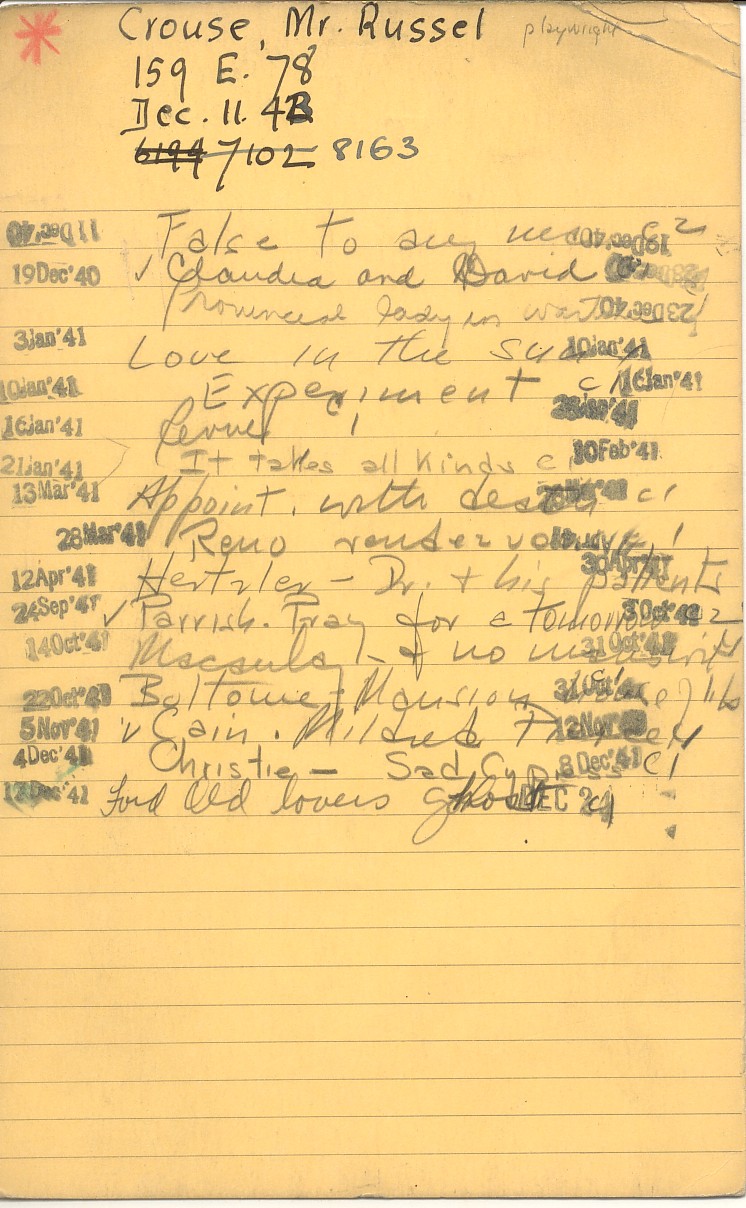 Crouse, Mr. Russel playwright
159 E. 78
Dec. 11. 42
6199 7102 8163
11 Dec '40 False to any c2 19 Dec '40
19 Dec '40 ✓ Claudia and David
Provincial lady in 23 Dec '40
3 Jan '41 Love in the sun 10 Jan '41
10 Jan '41 Experiment c1 16 Jan '41
16 Jan '41 c1
21 Jan '41 It takes all kinds c1 10 Feb '41
13 Mar '41 Appoint. with death c1
28 Mar '41 Reno rendezvous c1
12 Apr '41 Hertzler - Dr. + his patients 30 Apr '41
24 Sep '41 ✓ Parrish. Pray for a tomorrow c2
14 Oct '41 Macaulay - & no man's wit 31 Oct '41
22 Oct '41 Bottome - Mansion 31 Oct
5 Nov '41 ✓ Cain. Mildred Pierce c1 12 Nov
4 Dec '41 Christie - Sad Cypress c1 8 Dec '41
12 Dec '41 Ford Old lovers ghost c1 DEC 24